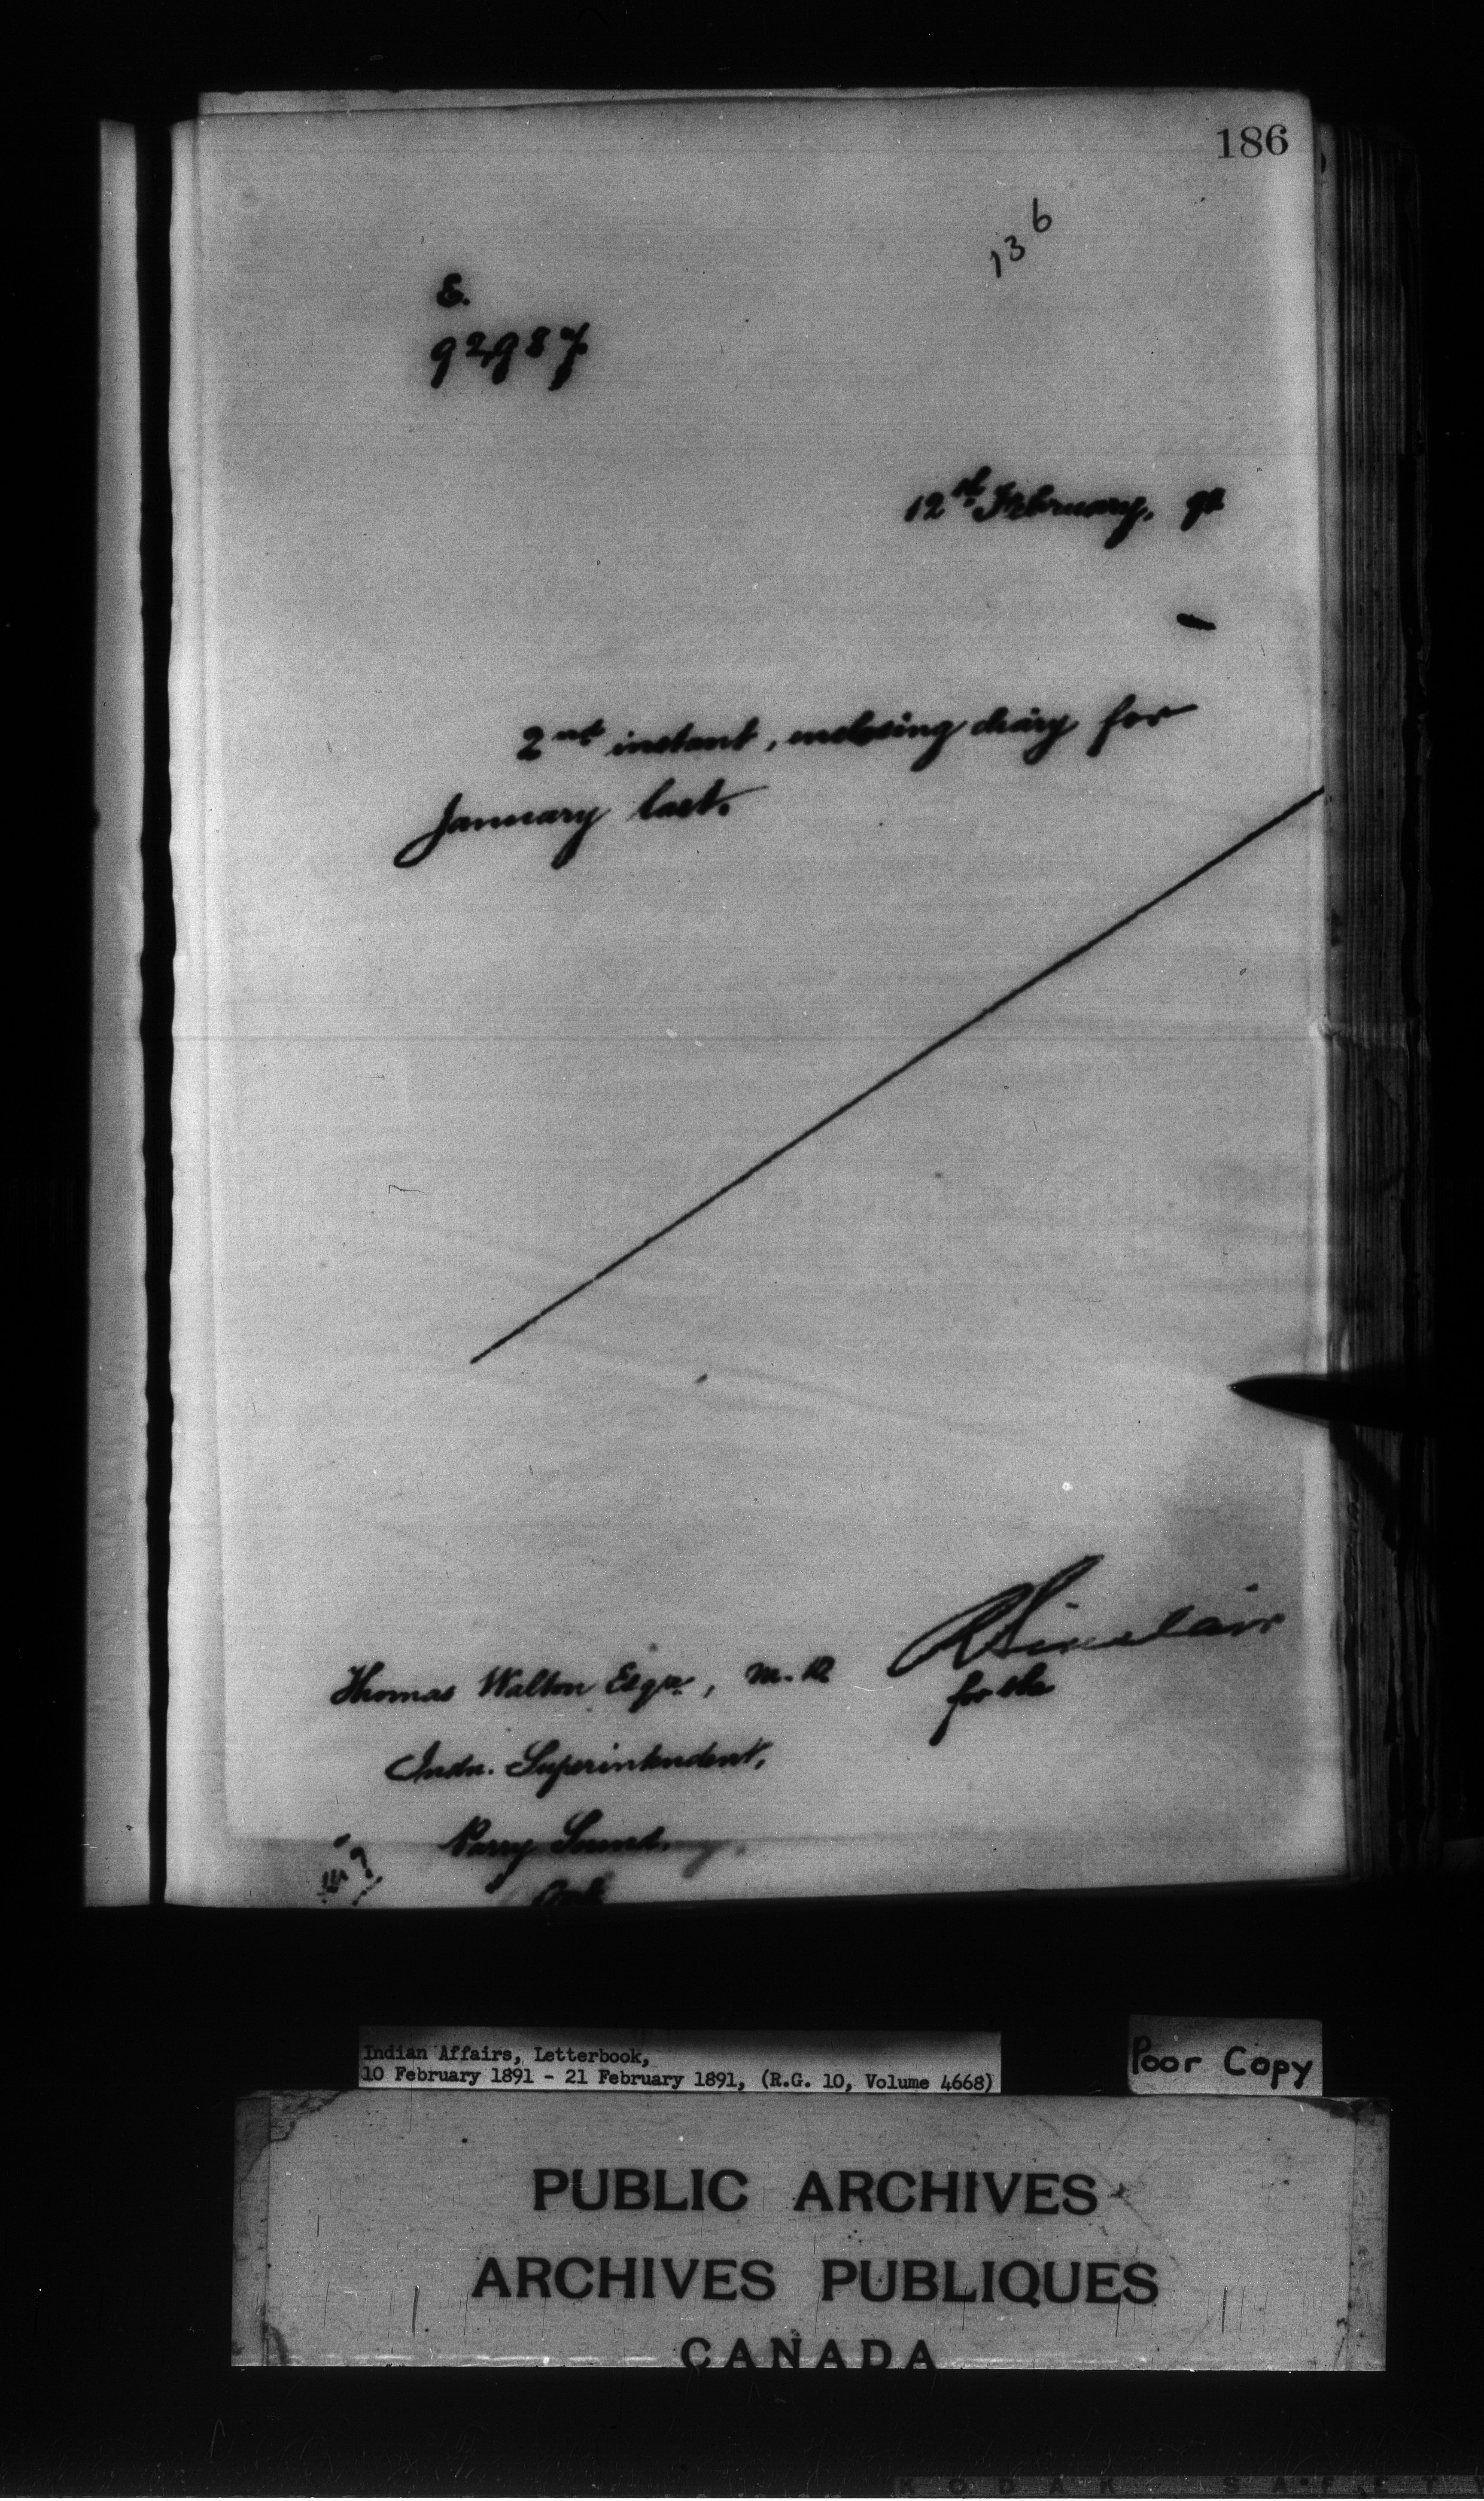 186
136
E.
92987
12th February, 91
2nd instant, enclosing diary for
January last.
RSinclair
for the
Thomas Walton Esqr., M.D
Indn. Superintendent,
Parry Sound.
Ont.
Indian Affairs, Letterbook,
10 February 1891 - 21 February 1891, (R.G. 10, Volume 4668)
Poor Copy
PUBLIC ARCHIVES
ARCHIVES PUBLIQUES
CANADA
KODAK SAFETY